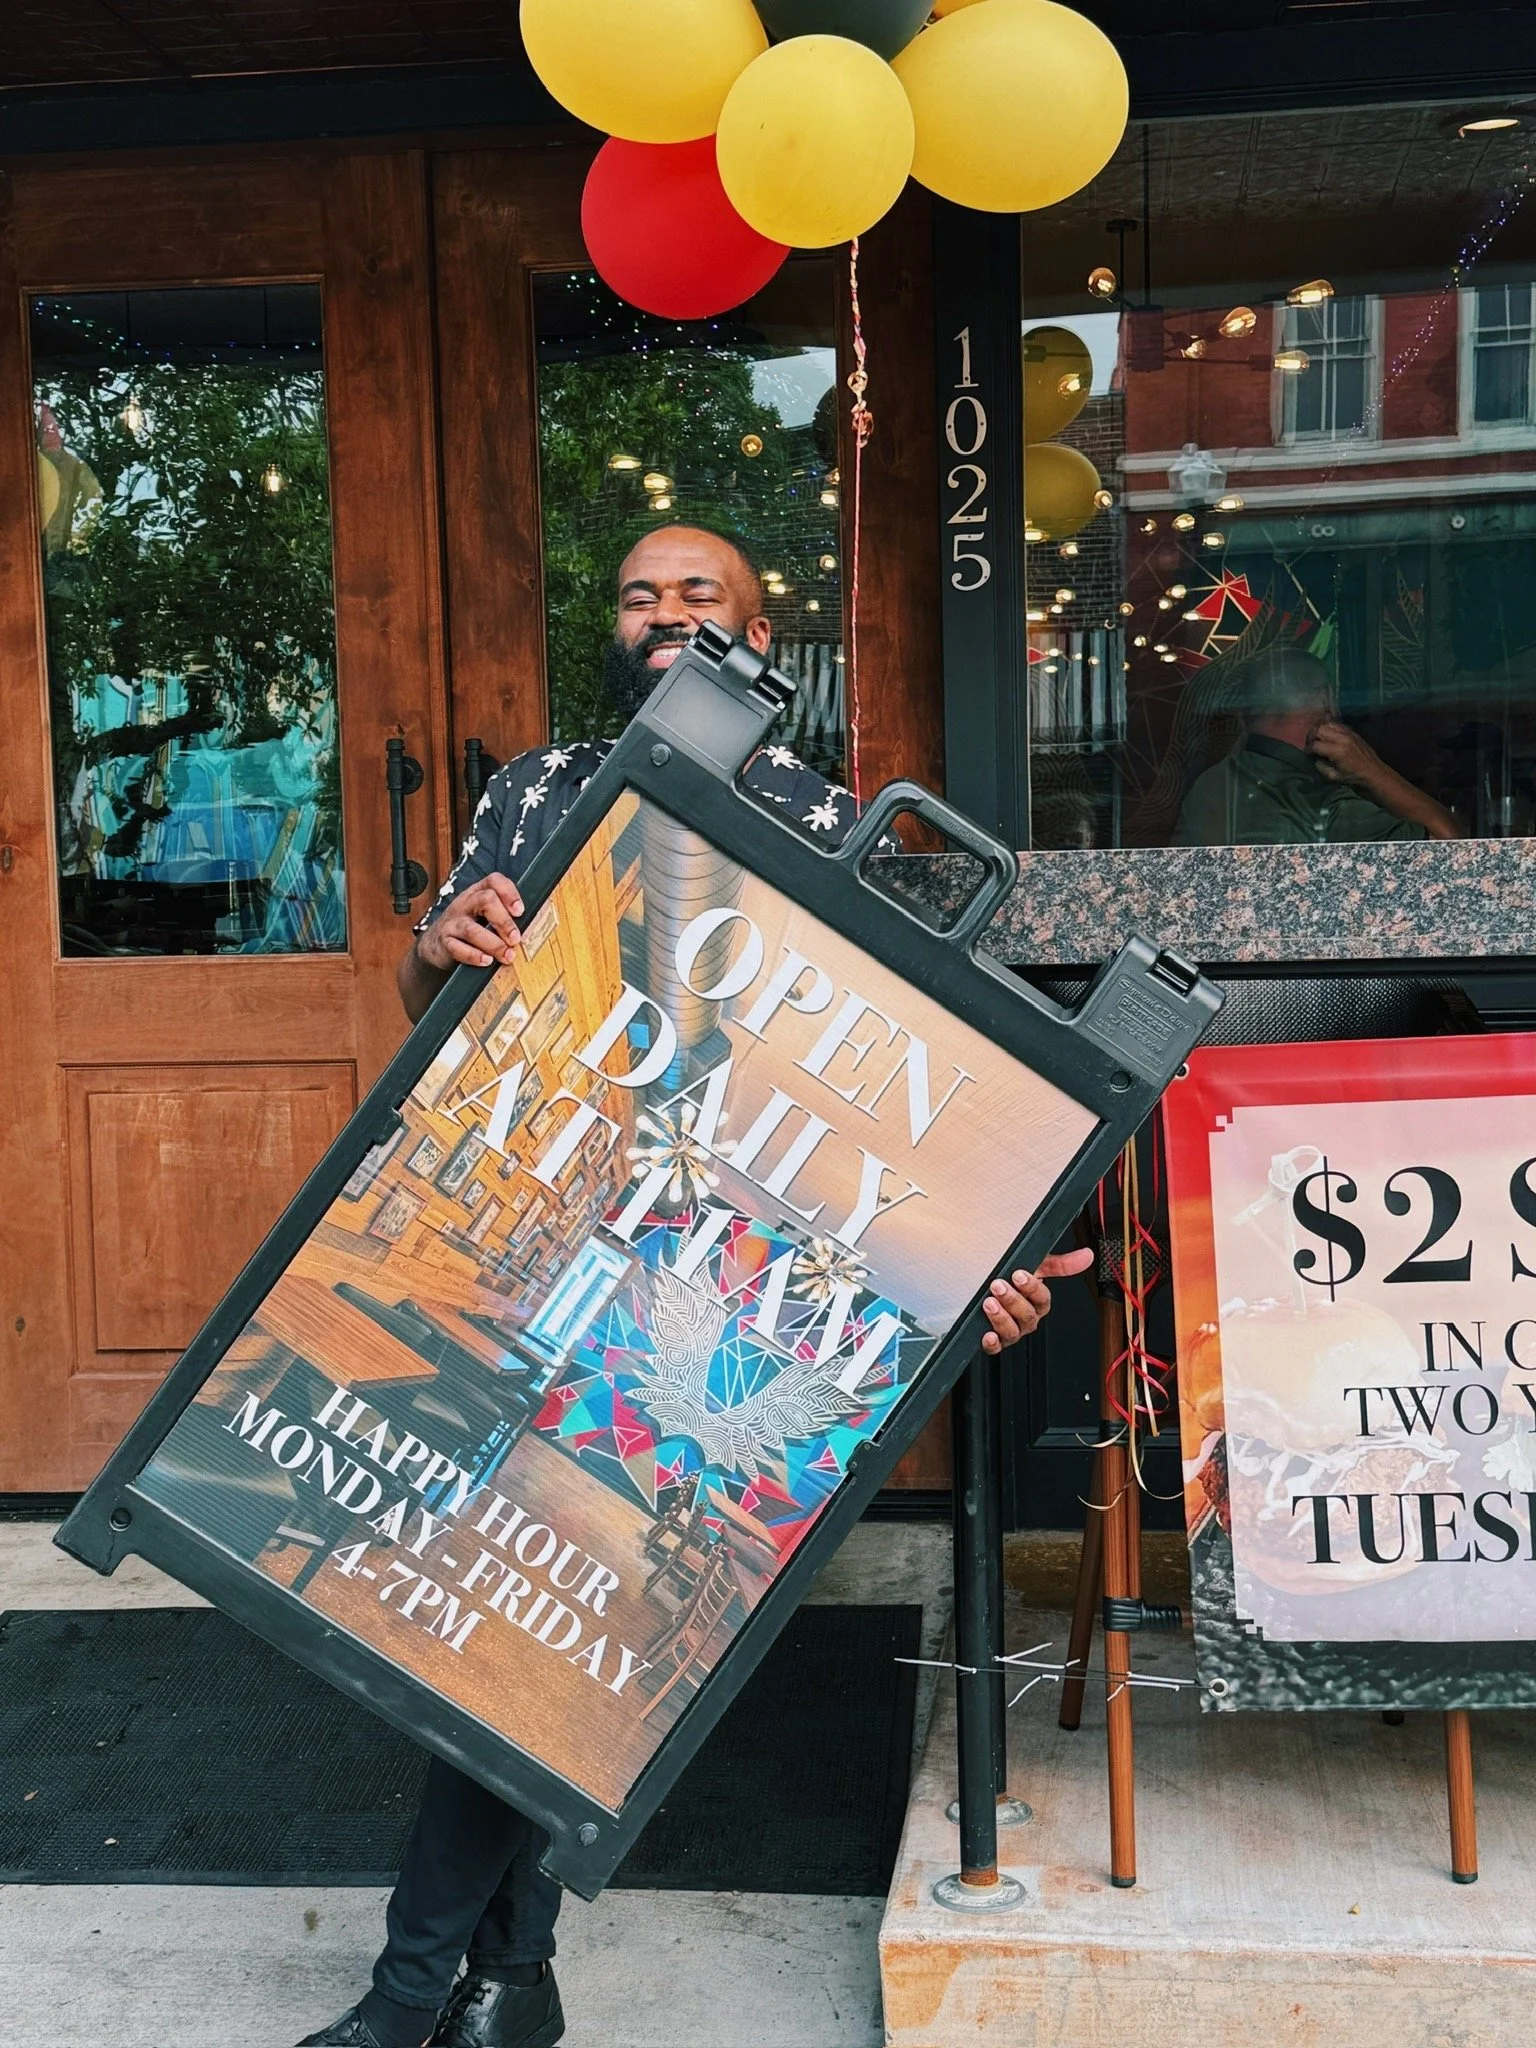 1025
OPEN
DAILY
AT 11AM
HAPPY HOUR
MONDAY - FRIDAY
4-7PM
$2
IN
TWO